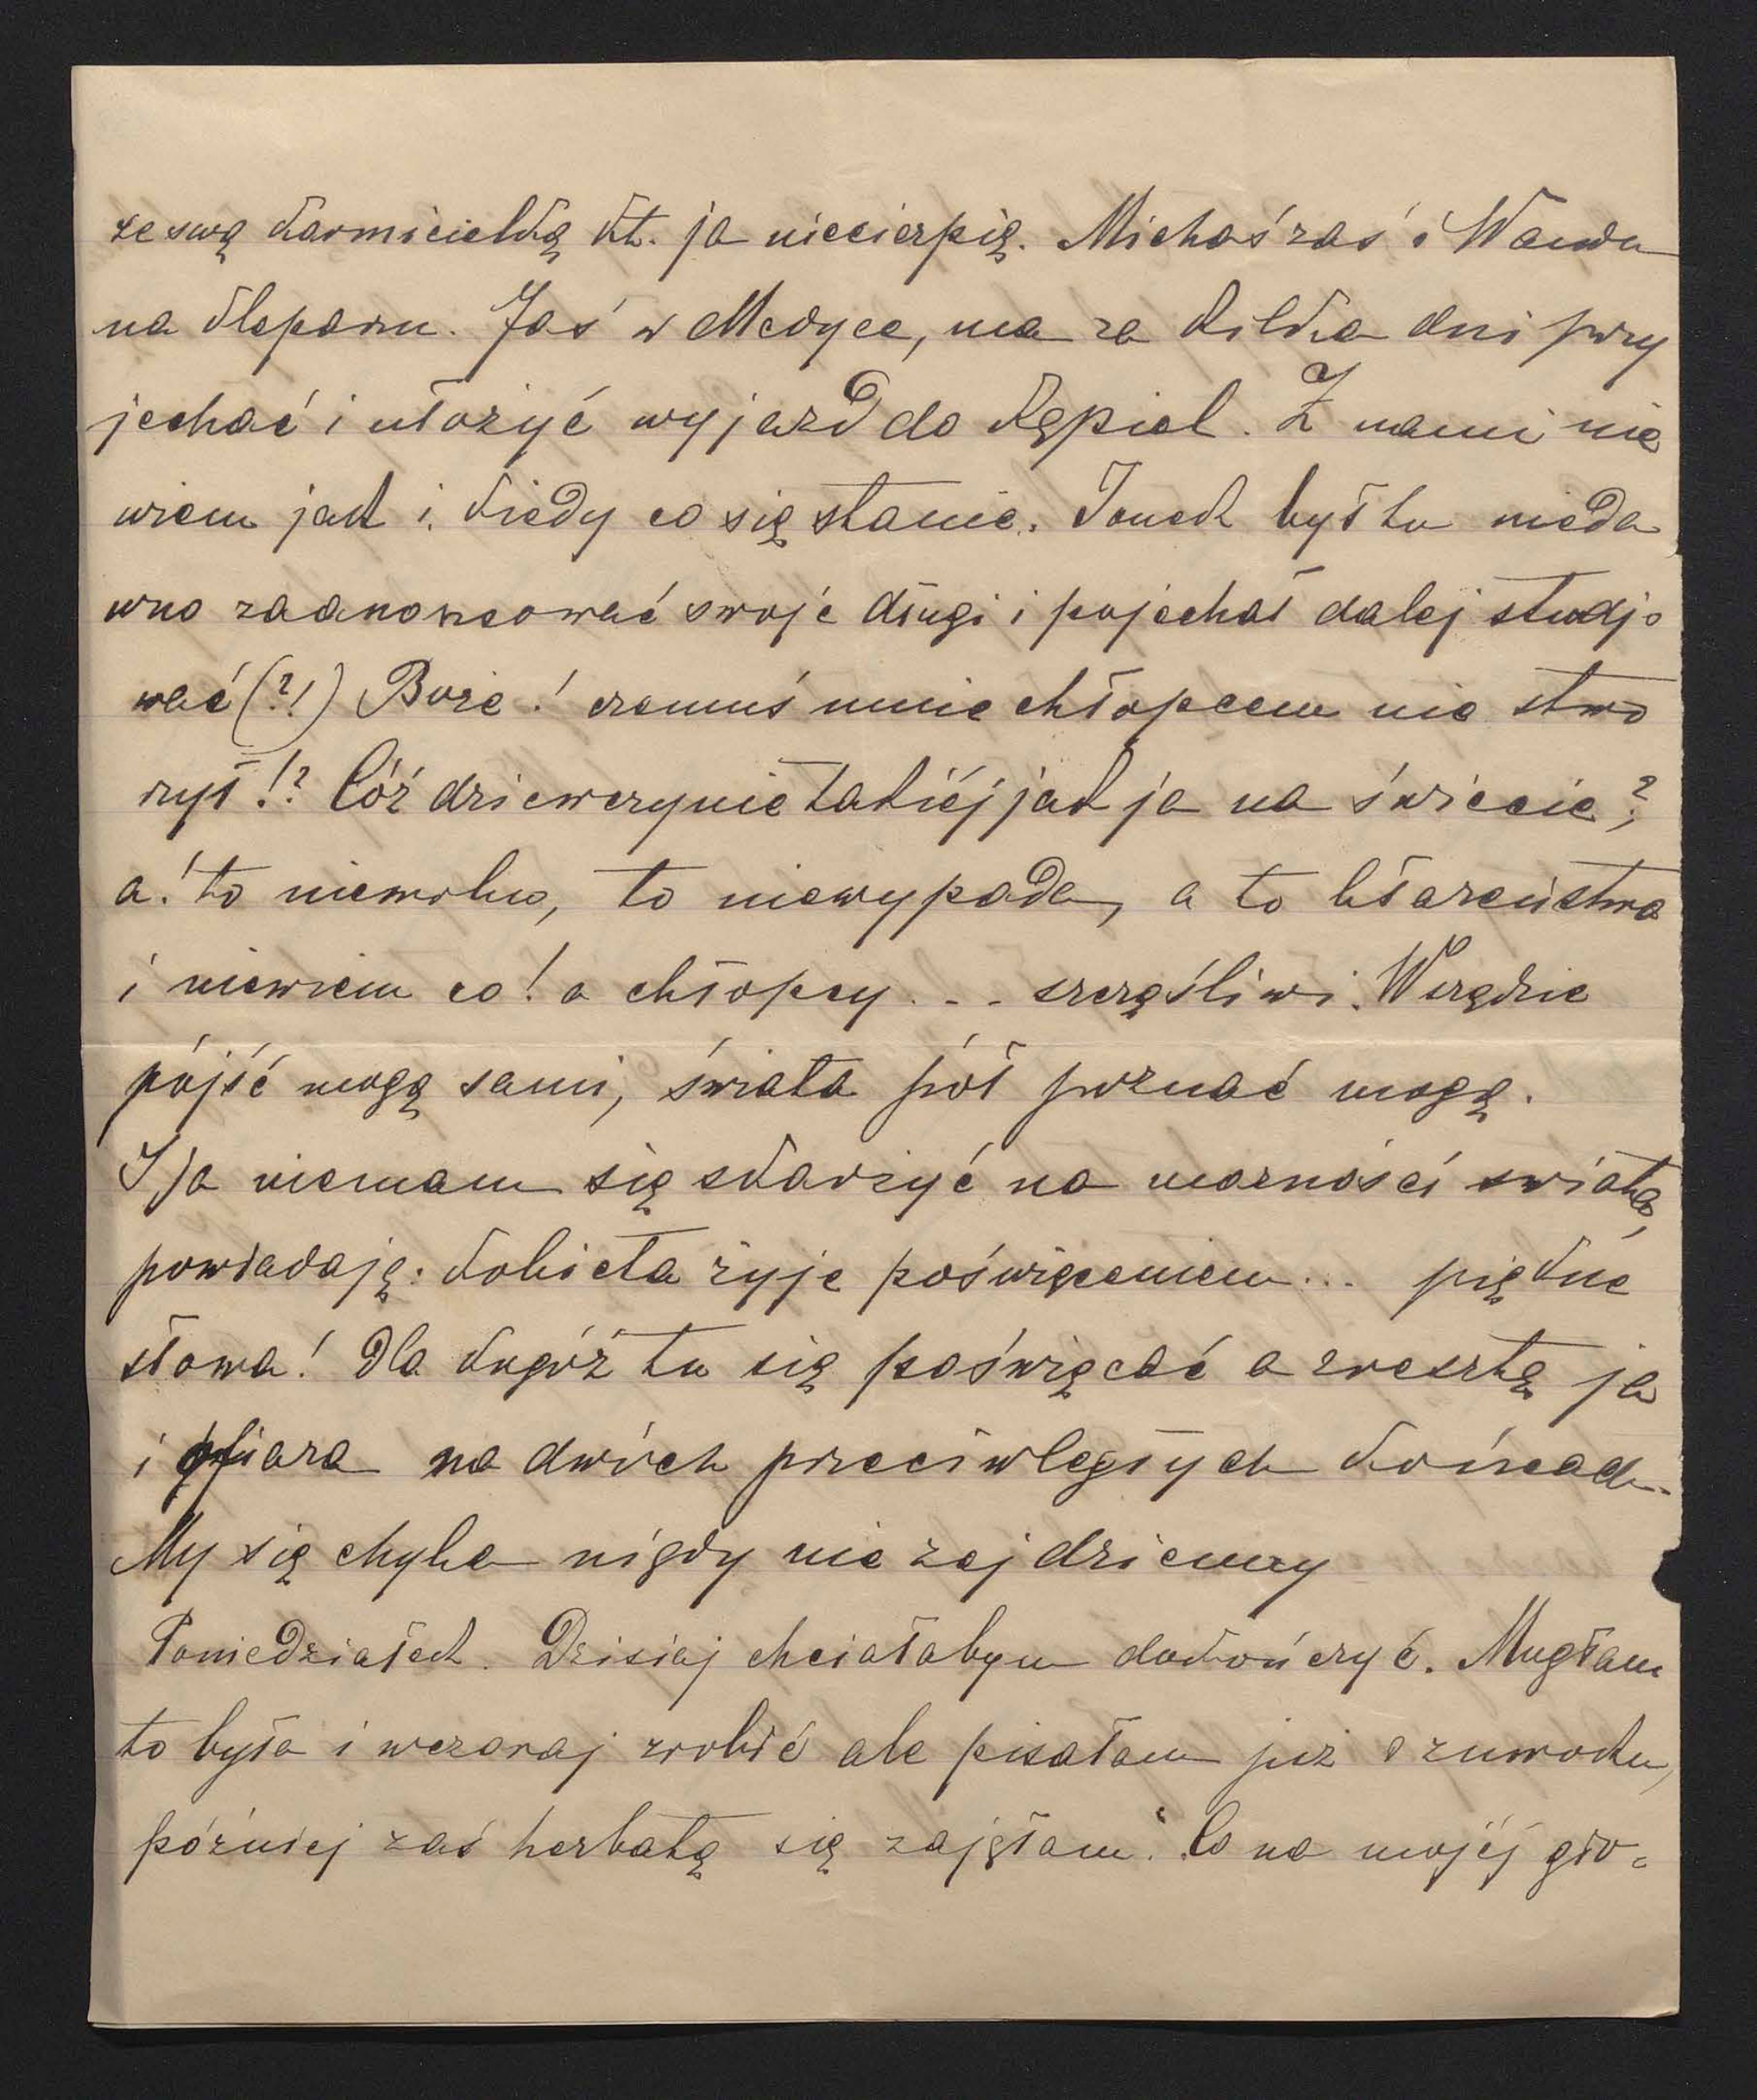 ze swą karmicielką kt. ja niecierpię. Michaś zaś i Wanda
na Kleparu. Jaś w Medyce, ma za kilka dni przy
jechać i ułożyć wyjazd do kąpiel. Z nami nie
wiem jak i kiedy co się stanie. Tonek był tu nieda
wno zaanonsować swoje długi i pojechał dalej studjo
wać (?!) Boże! czemuś mnie chłopcem nie stwo
rzył!? Cóż dziewczynie takiéj jak ja na świecie?,
a! to niewolno, to niewypada, a to błazeństwo
i niewiem co! a chłopcy... szczęśliwi. Wszędzie
pójść mogą sami, świata pół poznać mogą.
I ja niemam się skarżyć na marności świata,
powiadają: kobieta żyje poświęceniem... piękne
słowa! Dla kogóż tu się poświęcać a zresztą ja
i ofiara na dwóch przeciwległych końcach.
My się chyba nigdy nie zejdziemy
Poniedziałek. Dzisiaj chciałabym dokończyć. Mogłam
to była i wczoraj zrobić ale pisałam już o zmroku,
późniéj zaś herbatą się zajęłam. Co na mojéj gło=